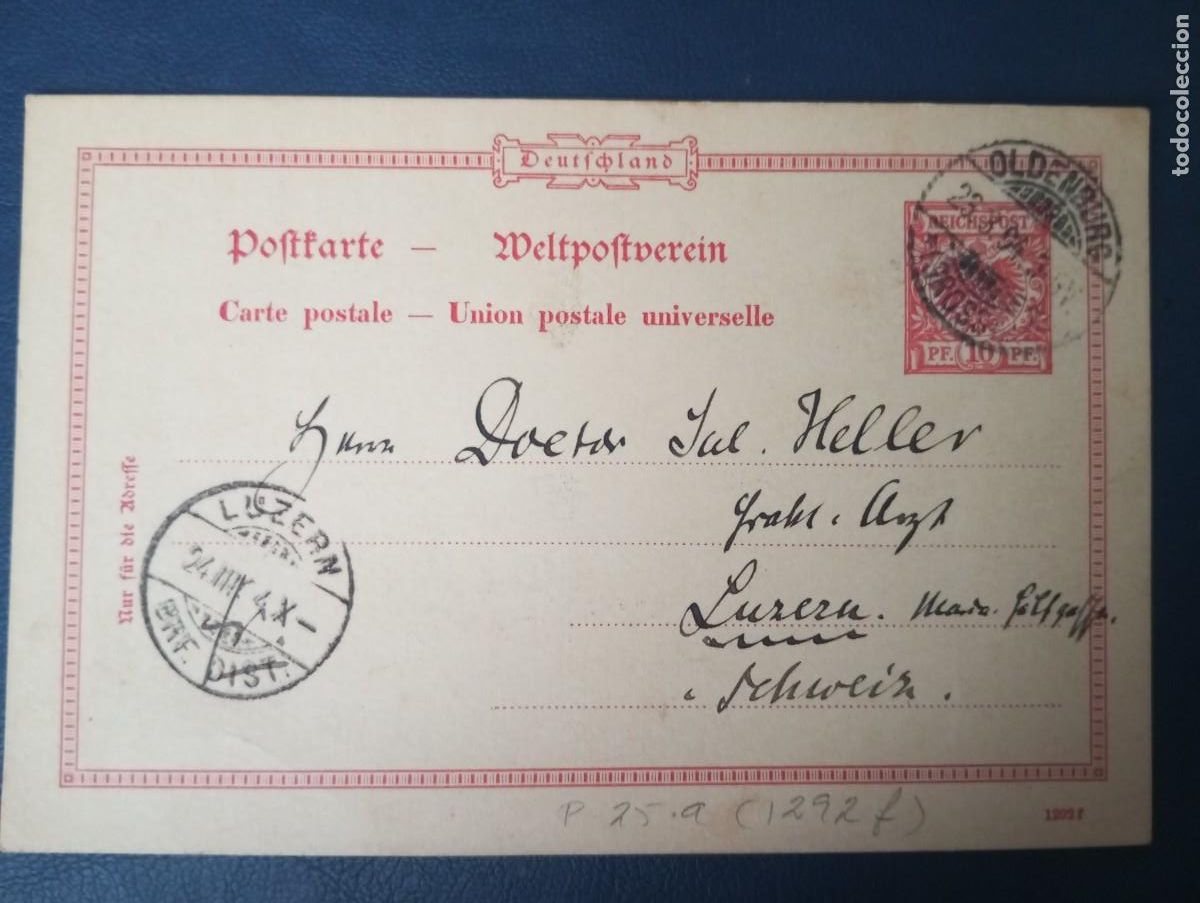 Deutschland
Postkarte — Weltpostverein
Carte postale — Union postale universelle
OLDENBURG
REICHSPOST
PF. 10 PF.
Herrn Doctor Jul. Heller
prakt. Arzt
Luzern.
Schweiz.
Nur für die Adresse
LUZERN
24.III
BRF. DIST.
P 25.a (1292f)
1292f
todocoleccion